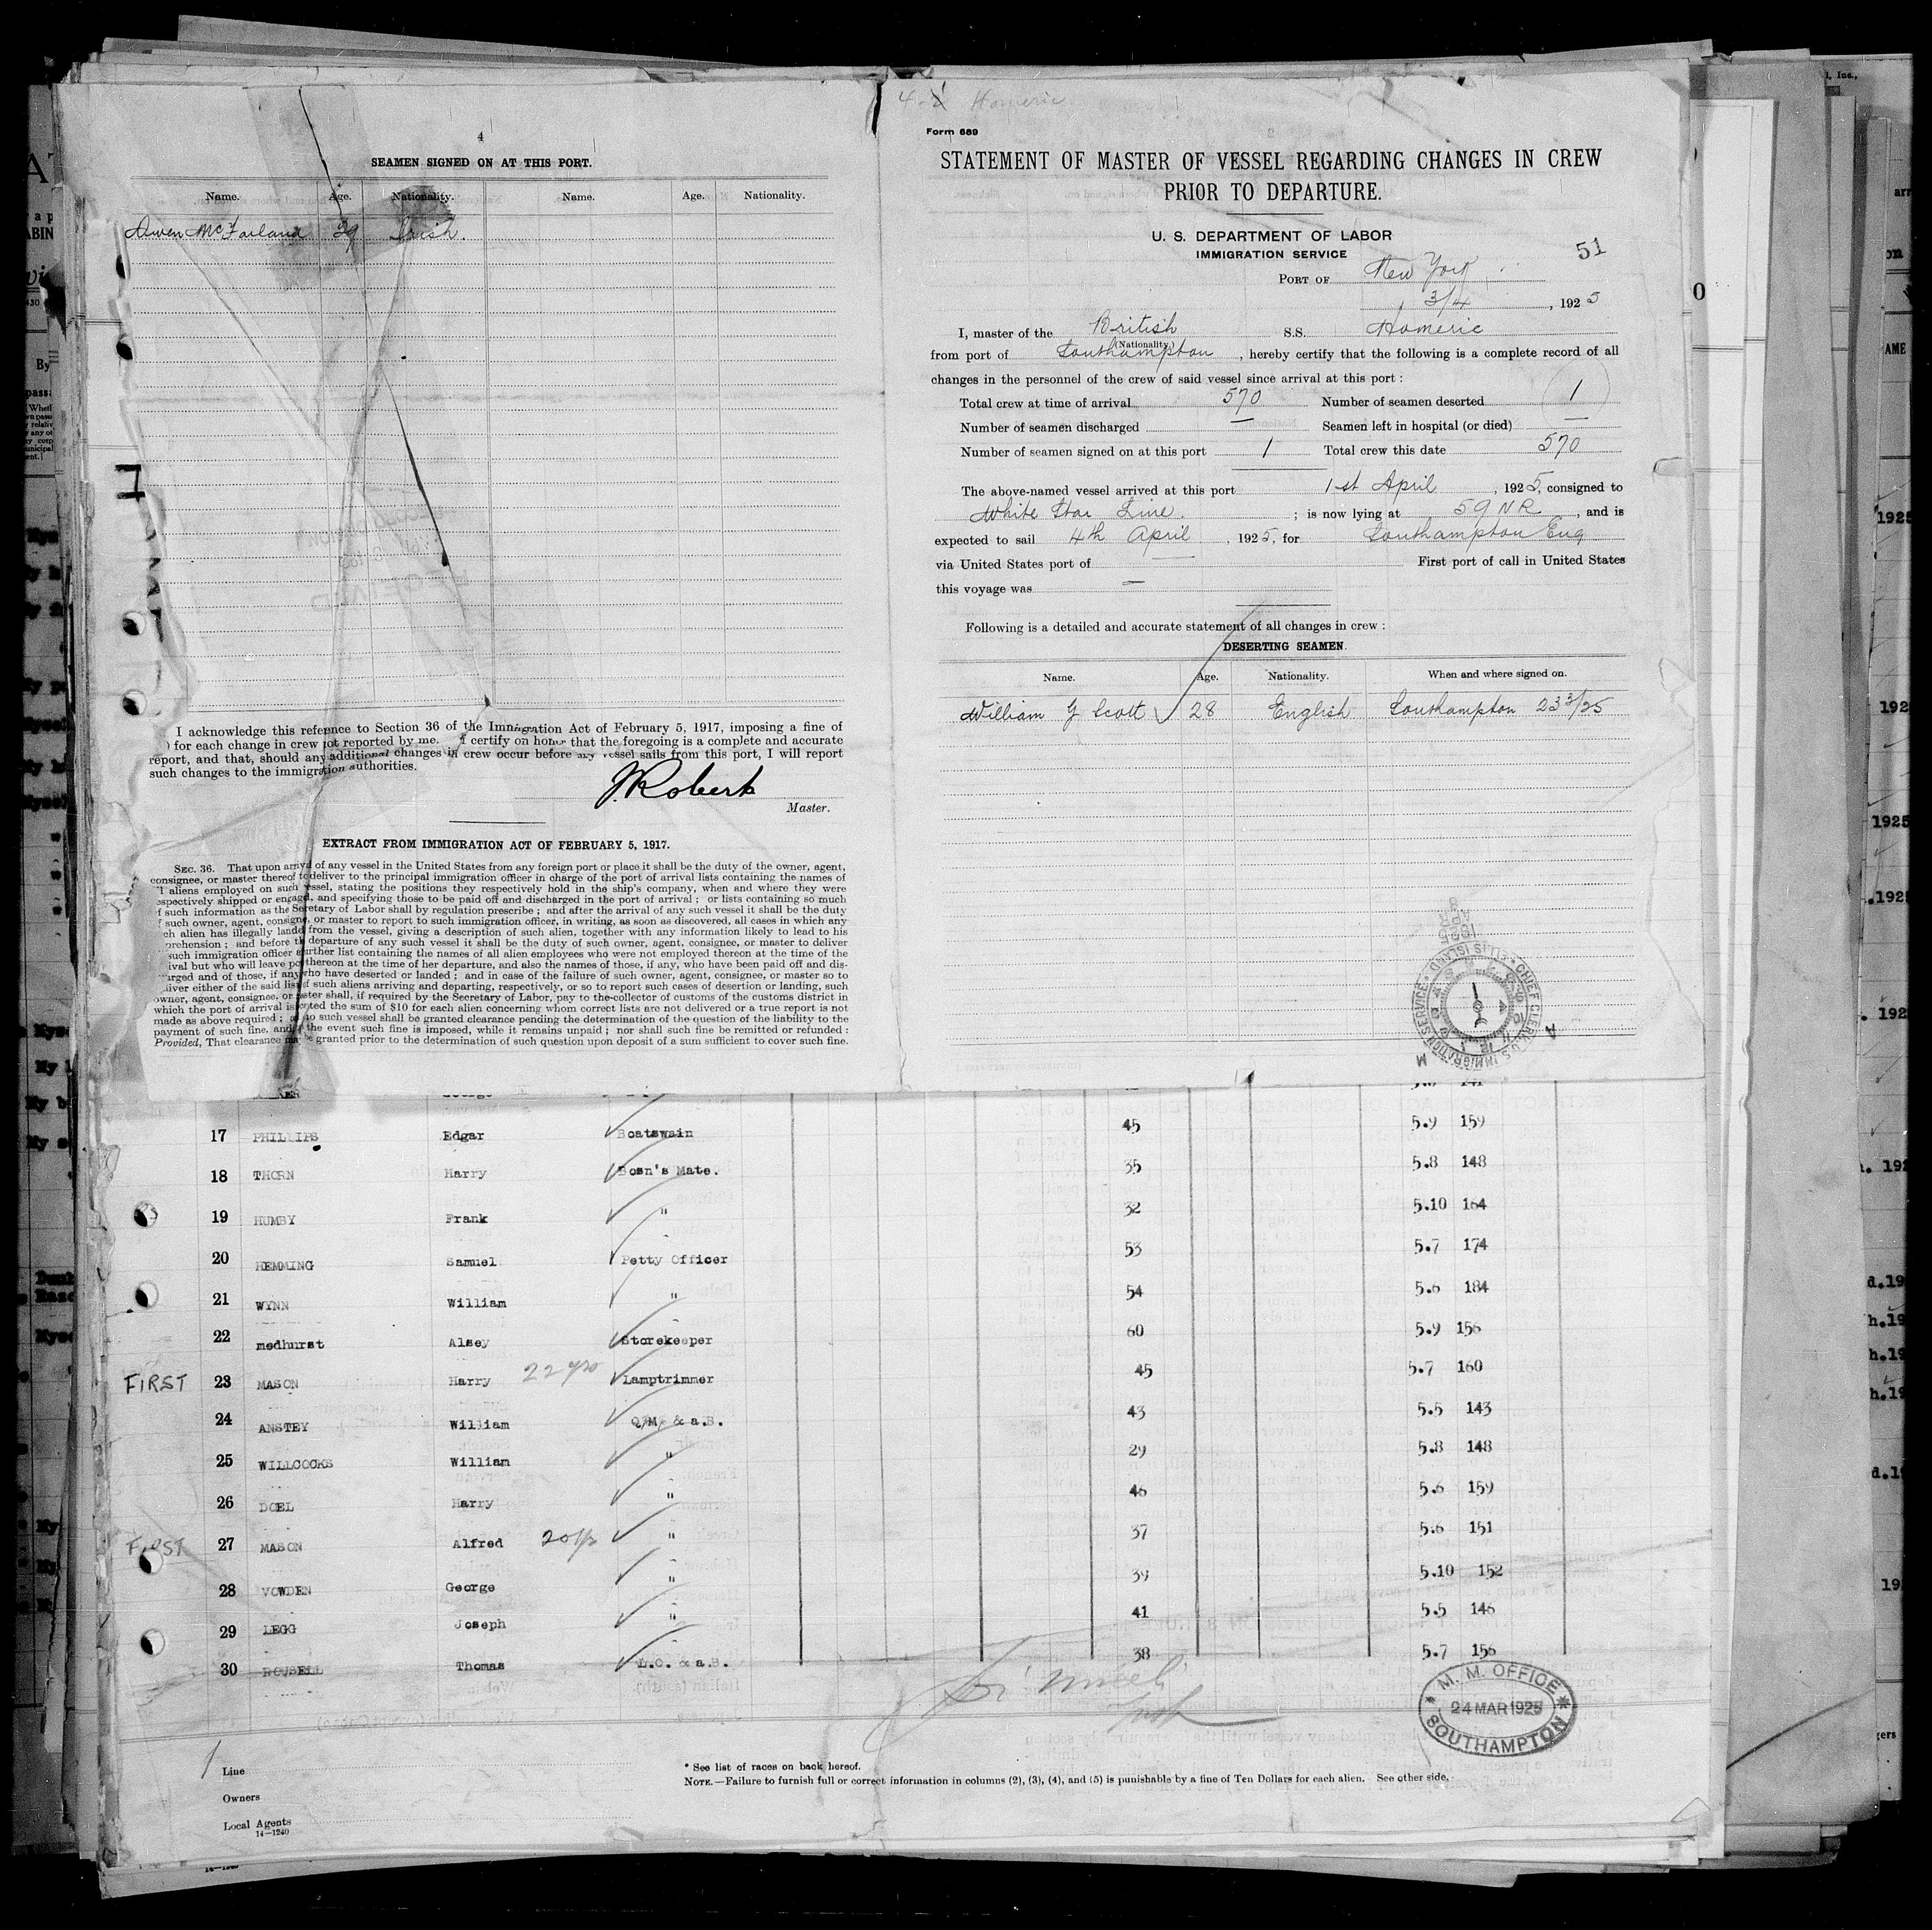 4
SEAMEN SIGNED ON AT THIS PORT.
Name. Age. Nationality. Name. Age. Nationality.
Owen McFarland 29 Irish.
I acknowledge this reference to Section 36 of the Immigration Act of February 5, 1917, imposing a fine of
for each change in crew not reported by me. I certify on honor that the foregoing is a complete and accurate
report, and that, should any additional changes in crew occur before any vessel sails from this port, I will report
such changes to the immigration authorities.
Master.
EXTRACT FROM IMMIGRATION ACT OF FEBRUARY 5, 1917.
SEC. 36. That upon arrival of any vessel in the United States from any foreign port or place it shall be the duty of the owner, agent,
consignee, or master thereof to deliver to the principal immigration officer in charge of the port of arrival lists containing the names of
aliens employed on such vessel, stating the positions they respectively hold in the ship's company, when and where they were
respectively shipped or engaged, and specifying those to be paid off and discharged in the port of arrival; or lists containing so much
of such information as the Secretary of Labor shall by regulation prescribe; and after the arrival of any such vessel it shall be the duty
of such owner, agent, consignee, or master to report to such immigration officer, in writing, as soon as discovered, all cases in which any
such alien has illegally landed from the vessel, giving a description of such alien, together with any information likely to lead to his
apprehension; and before the departure of any such vessel it shall be the duty of such owner, agent, consignee, or master to deliver
such immigration officer further list containing the names of all alien employees who were not employed thereon at the time of the
arrival but who will leave port thereon at the time of her departure, and also the names of those, if any, who have been paid off and dis-
charged and of those, if any, who have deserted or landed; and in case of the failure of such owner, agent, consignee, or master so to
deliver either of the said lists of such aliens arriving and departing, respectively, or so to report such cases of desertion or landing, such
owner, agent, consignee, or master shall, if required by the Secretary of Labor, pay to the collector of customs of the customs district in
which the port of arrival is located the sum of $10 for each alien concerning whom correct lists are not delivered or a true report is not
made as above required; and no such vessel shall be granted clearance pending the determination of the question of the liability to the
payment of such fine, and in the event such fine is imposed, while it remains unpaid; nor shall such fine be remitted or refunded:
Provided, That clearance may be granted prior to the determination of such question upon deposit of a sum sufficient to cover such fine.
Homeric
Form 689
STATEMENT OF MASTER OF VESSEL REGARDING CHANGES IN CREW
PRIOR TO DEPARTURE.
U. S. DEPARTMENT OF LABOR
IMMIGRATION SERVICE
51
PORT OF New York
3/4, 1925
I, master of the British S.S. Homeric
(Nationality.)
from port of Southampton, hereby certify that the following is a complete record of all
changes in the personnel of the crew of said vessel since arrival at this port:
Total crew at time of arrival 570 Number of seamen deserted 1
Number of seamen discharged — Seamen left in hospital (or died) —
Number of seamen signed on at this port 1 Total crew this date 570
The above-named vessel arrived at this port 1st April, 1925, consigned to
White Star Line.; is now lying at 59 NR, and is
expected to sail 4th April, 1925, for Southampton Eng
via United States port of — First port of call in United States
this voyage was —
Following is a detailed and accurate statement of all changes in crew:
DESERTING SEAMEN.
Name. Age. Nationality. When and where signed on.
William G Scott 28 English Southampton 23 3/25
CHIEF CLERK, U.S. IMMIGRATION SERVICE ELLIS ISLAND
17 PHILLIPS Edgar Boatswain 45 5.9 159
18 THORN Harry Bosn's Mate. 35 5.8 148
19 HUMBY Frank " 32 5.10 164
20 HEMMING Samuel Petty Officer 53 5.7 174
21 WYNN William " 54 5.6 184
22 medhurst Alsey Storekeeper 60 5.9 156
FIRST 23 MASON Harry 22 yrs Lamptrimmer 45 5.7 160
24 ANSTEY William Q/M, & a.B. 43 5.5 143
25 WILLCOCKS William " 29 5.8 148
26 DOEL Harry " 46 5.6 159
FIRST 27 MASON Alfred " 37 5.6 151
28 VOWDEN George " 39 5.10 152
29 LEGG Joseph " 41 5.5 146
30 ROUSELL Thomas L.O. & a.B. 38 5.7 156
M. M. OFFICE
24 MAR 1925
SOUTHAMPTON
Line
Owners
Local Agents
14—1240
* See list of races on back hereof.
NOTE.—Failure to furnish full or correct information in columns (2), (3), (4), and (5) is punishable by a fine of Ten Dollars for each alien. See other side.